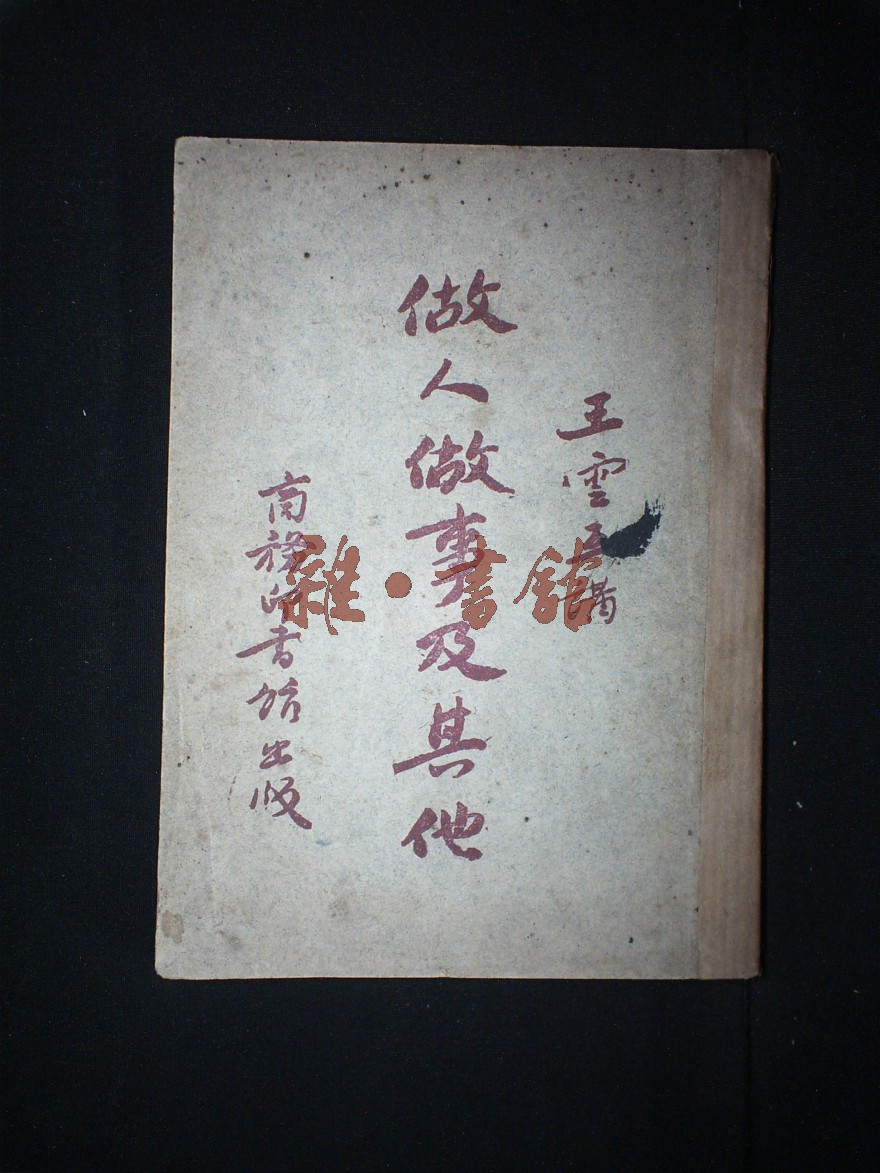 王雲五講
做人做事及其他
商務印书館出版
雜·書館